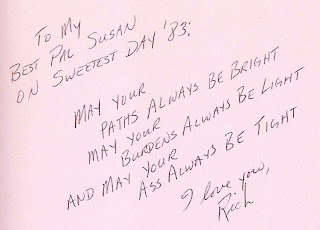 To My
Best Pal Susan
on Sweetest Day '83:
May your
paths always be bright
May your
burdens always be light
And may your
ass always be tight
I love you,
Rich